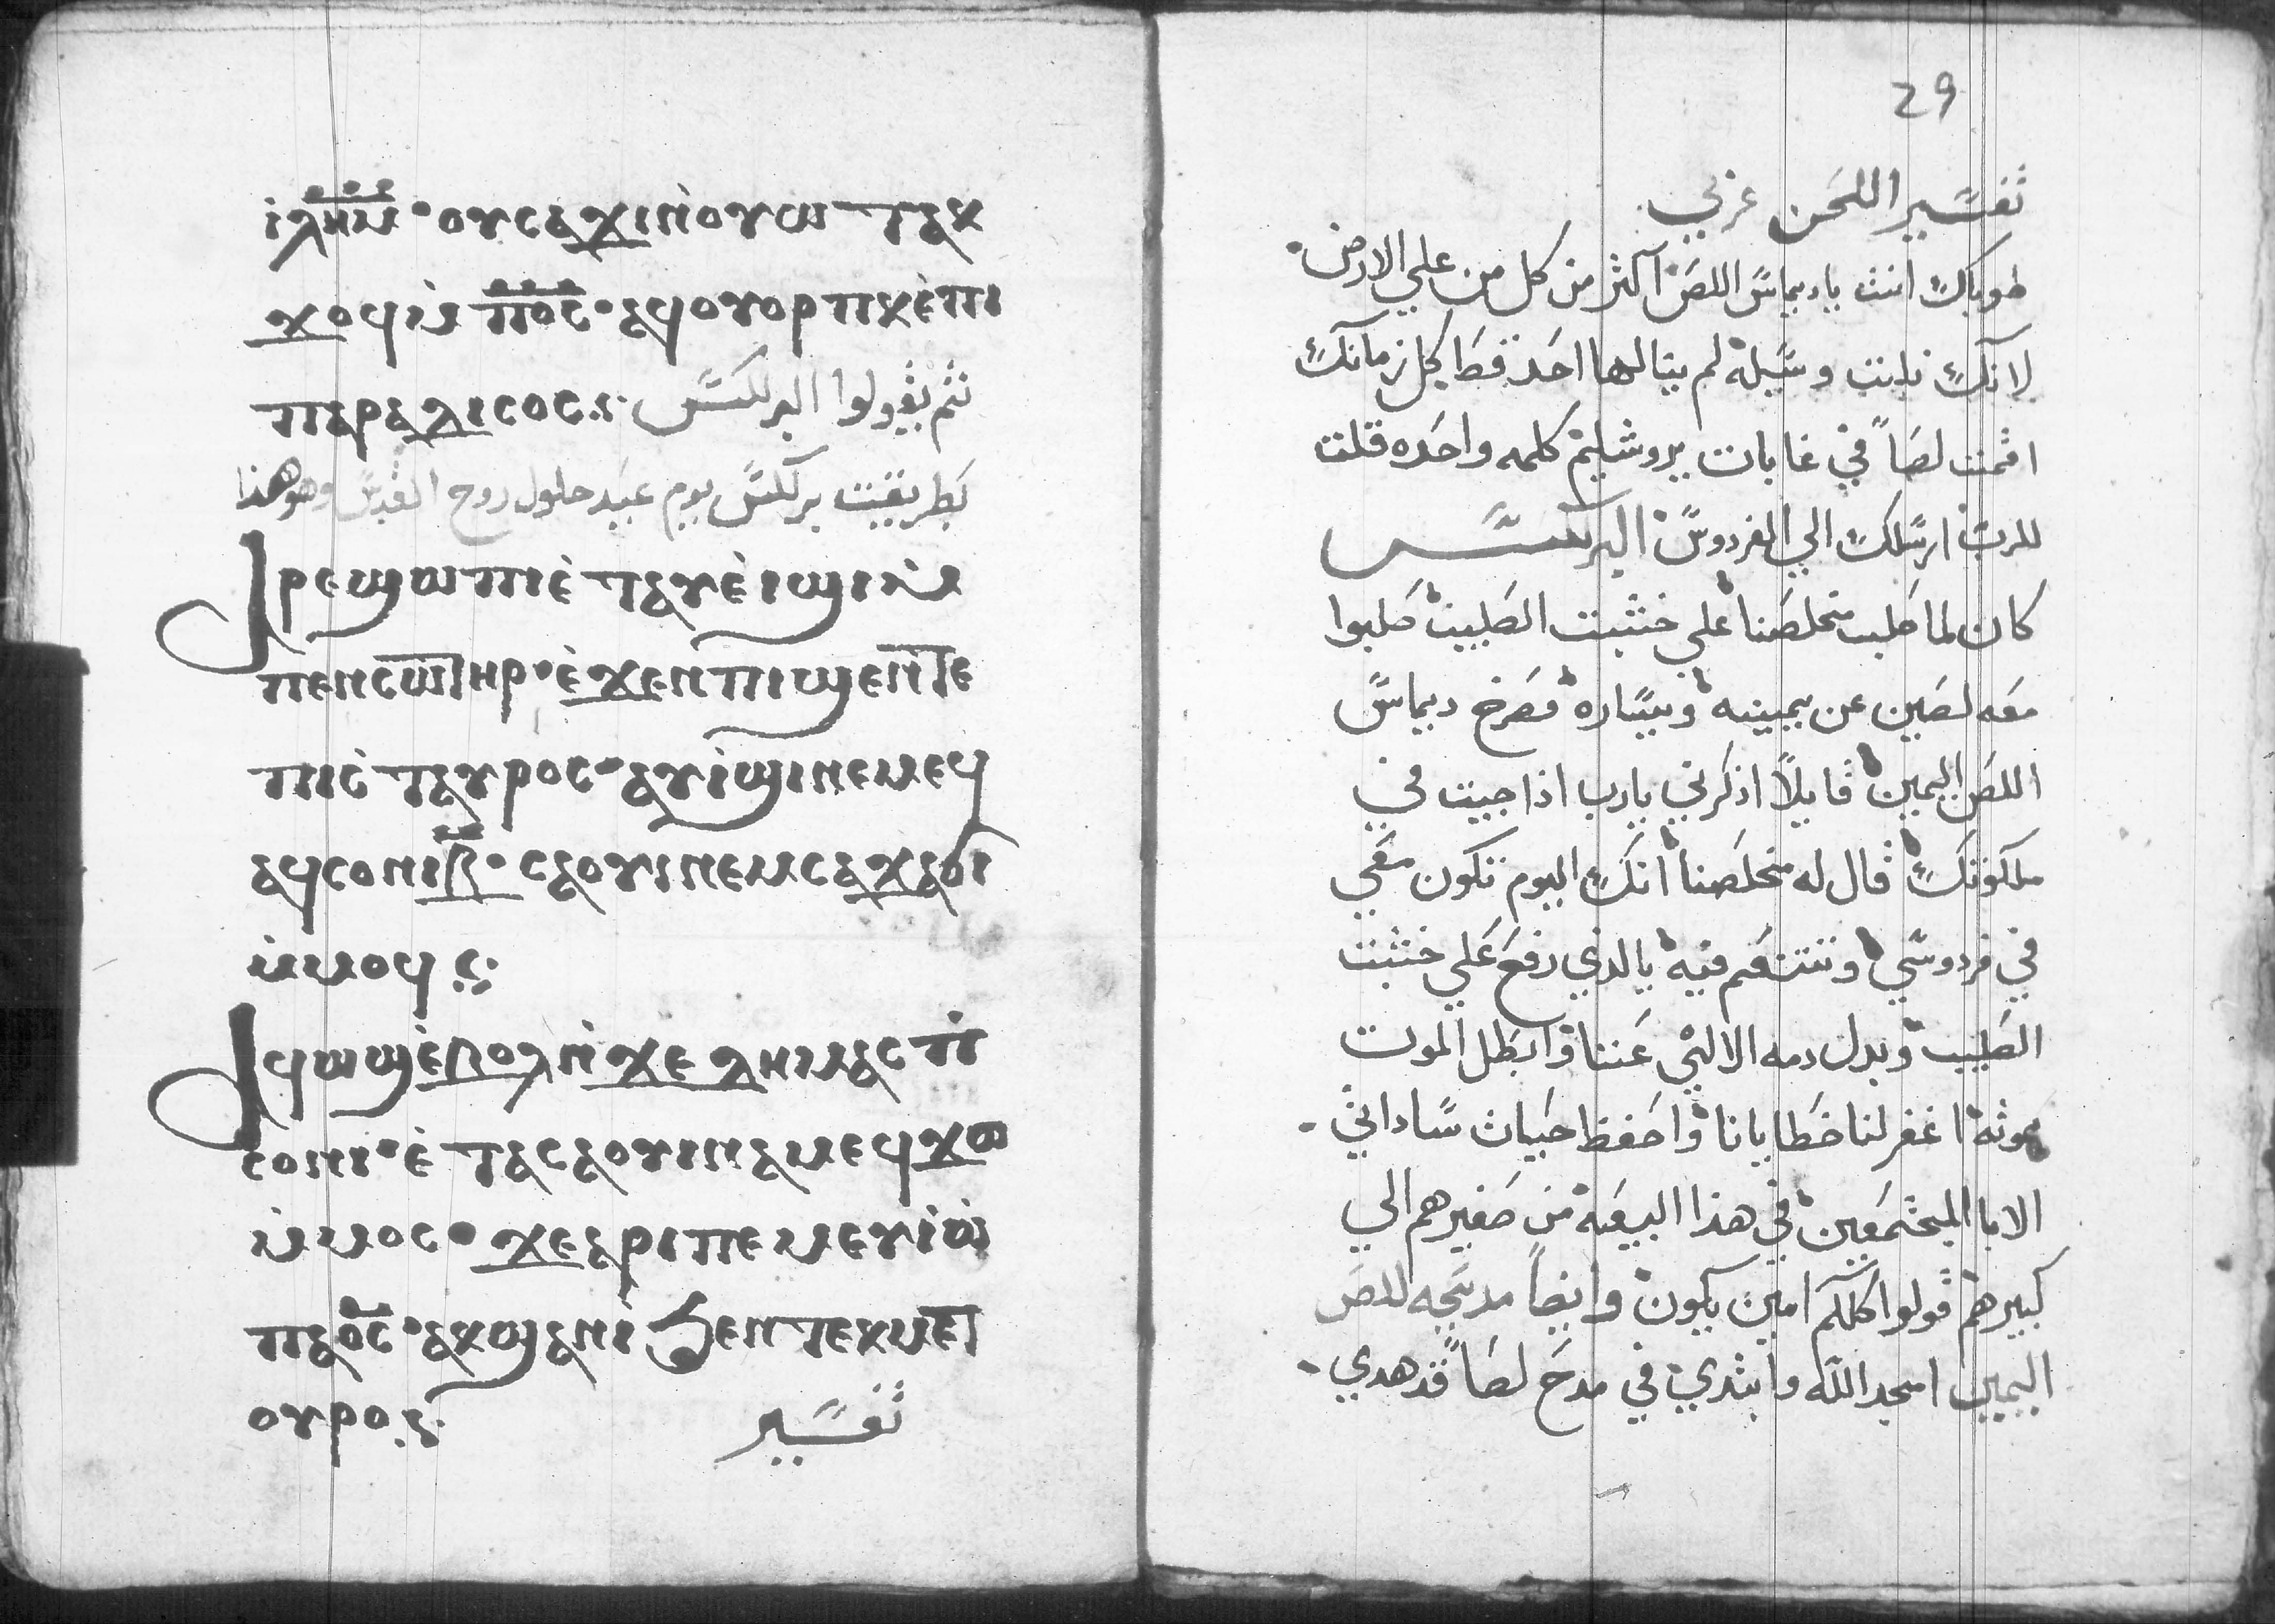 ⲓⲗⲏⲙ · ⲟⲩⲥⲁϫⲓⲛ̀ⲟⲩⲱ ⲧⲁⲕ
ϫⲟϥⲙ̀ ⲡⲟ̅ⲥ̅ · ⲁϥⲟⲩⲟⲣⲡⲕ ⲉ̀ⲡⲓ
ⲡⲁⲣⲁⲇⲓⲥⲟⲥ ثم يقولوا البركسس
بطريقت بركسس يوم عيد حلول روح القدس وهو هذا
Ⲁⲣⲉϣⲱⲡⲓ ⲉ̀ⲧⲁⲩⲉ̀ⲓϣⲓⲙ̀
ⲡⲉⲛⲥⲱⲧⲏⲣ · ⲉ̀ϫⲉⲛⲡⲓϣⲉⲛ̀ⲧⲉ
ⲡⲓⲥ̀ⲧⲁⲩⲣⲟⲥ · ⲁⲩⲓ̀ϣⲓⲛⲉⲙⲉϥ
ⲁϥⲥⲟⲛⲓⲃ̅ · ⲥⲁⲟⲩⲓⲛⲉⲙⲥⲁϫⲁϭⲓ
ⲙ̀ⲙⲟϥ
Ⲁϥⲱϣⲉ̀ⲃⲟⲗⲛ̀ϫⲉ ⲇⲏⲙⲁⲥ ⲡⲓ
ⲥⲟⲛⲓ · ⲉ̀ ⲧⲁⲥⲁⲟⲩⲓⲛⲁⲙⲉϥϫⲱ
ⲙ̀ⲙⲟⲥ · ϫⲉⲁⲣⲓⲡⲉⲙⲉⲩⲓ̀ⲱ̀
ⲡⲁⲟ̅ⲥ̅ · ⲁⲕϣⲁⲛⲓ̀ ϧⲉⲛⲧⲉⲕⲙⲉⲧ
ⲟⲩⲣⲟ
تفسير
29
تفسير اللحن عربي
طوباك انت ياديماس اللص آكثر من كل من علي الارض
لانك نلت وسيلة لم ينالها احد قط كل زمانك
اقمت لصاً في غابات يروشليم كلمه واحده قلت
للرب ارسلك الي الفردوس البركسس
كان لما صلب مخلصنا علي خشبت الصليب صلبوا
معه لصين عن يمينه ويساره فصرخ ديماس
اللص اليمين قايلاً اذكرني يارب اذا جيت في
ملكوتك قال له مخلصنا انك اليوم تكون معي
في فردوسي وتتنعم فيه يالذي رفع علي خشبت
الصليب وبدل دمه الالهي عننا وابطل الموت
بموته اغفر لنا خطايانا واحفظ حيات ساداتي
الابا المجتمعين في هذا البيعه من صغيرهم الي
كبيرهم قولوا كلكم امين يكون وايضاً مديحه للص
اليمين امجد الله وابتدي في مدح لصاً قد هدي